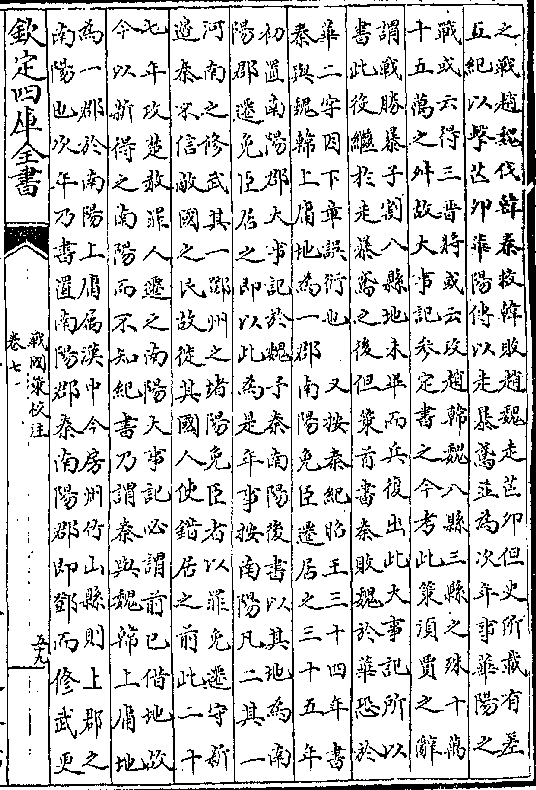 之戰趙魏伐韓秦救韓敗趙魏走芒卯但史所載有差
五紀以擊芒卯華陽傳以走暴鳶並為次年事華陽之
戰或云得三晉將或云攻趙韓魏八縣三縣之殊十萬
十五萬之舛故大事記參定書之今考此策須賈之辭
謂戰勝暴子割八縣地未畢而兵復出此大事記所以
書此役繼於走暴鳶之後但策首書秦敗魏於華恐於
華二字因下章誤衍也　又按秦紀昭王三十四年書
秦與魏韓上庸地為一郡南陽免臣遷居之三十五年
初置南陽郡大事記於魏予秦南陽後書以其地為南
陽郡遷免臣居之即以此為是年事按南陽凡二其一
河南之修武其一鄧州之堵陽免臣者以罪免遷守新
邊秦不信敵國之民故徙其國人使錯居之前此二十
七年攻楚赦罪人遷之南陽大事記必謂前已偕地故
今以新得之南陽而不知紀書乃謂秦與魏韓上庸地
為一郡於南陽上庸屬漢中今房州竹山縣則上郡之
南陽也次年乃書置南陽郡秦南陽郡即鄧而修武更
欽定四庫全書
戰國策校注
卷七
五九